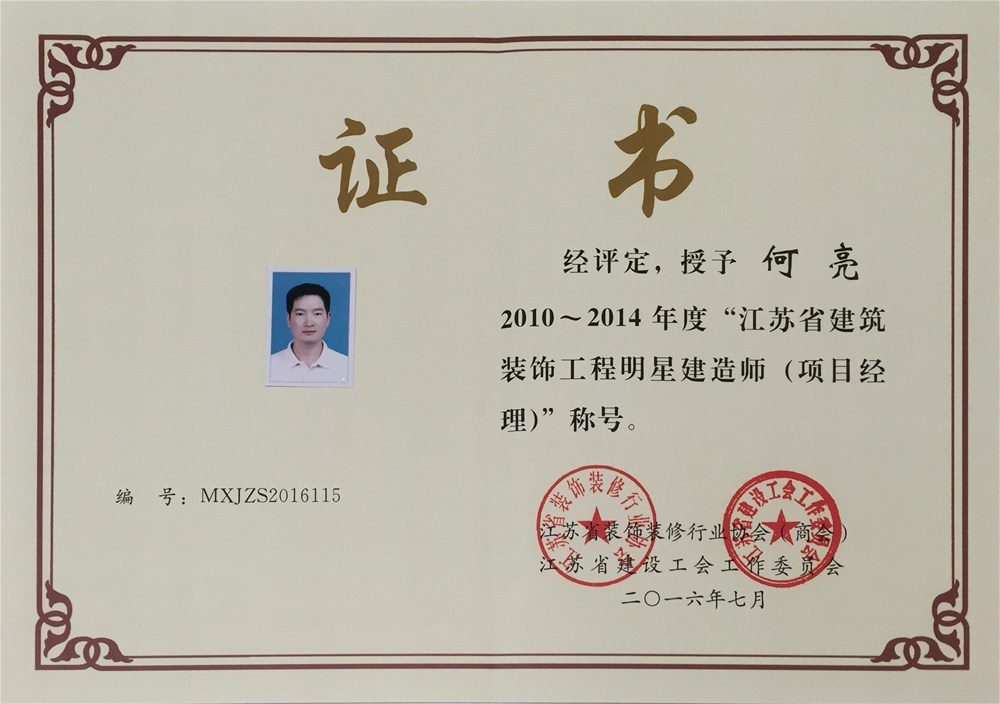 证 书
经评定，授予 何 亮
2010～2014 年度“江苏省建筑
装饰工程明星建造师（项目经
理）”称号。
编 号：MXJZS2016115
江苏省装饰装修行业协会
江苏省建设工会工作委员会
江苏省装饰装修行业协会（商会）
江苏省建设工会工作委员会
二〇一六年七月